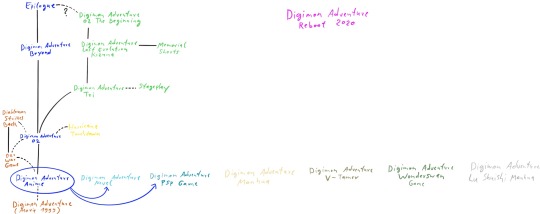 Epilogue
?
Digimon Adventure
02 The Beginning
Digimon Adventure
Reboot 2020
Digimon Adventure
Beyond
Digimon Adventure
Last Evolution
Kizuna
Memorial
Shorts
Digimon Adventure
Tri
Stageplay
Diablomon
Strikes
Back
Hurricane
Touchdown
Digimon Adventure
02
Our
War
Game
Digimon Adventure
Anime
Digimon Adventure
Novel
Digimon Adventure
PSP Game
Digimon Adventure
Manhua
Digimon Adventure
V-Tamer
Digimon Adventure
Wonderswan
Game
Digimon Adventure
Manhua
Digimon Adventure
(Movie 1999)